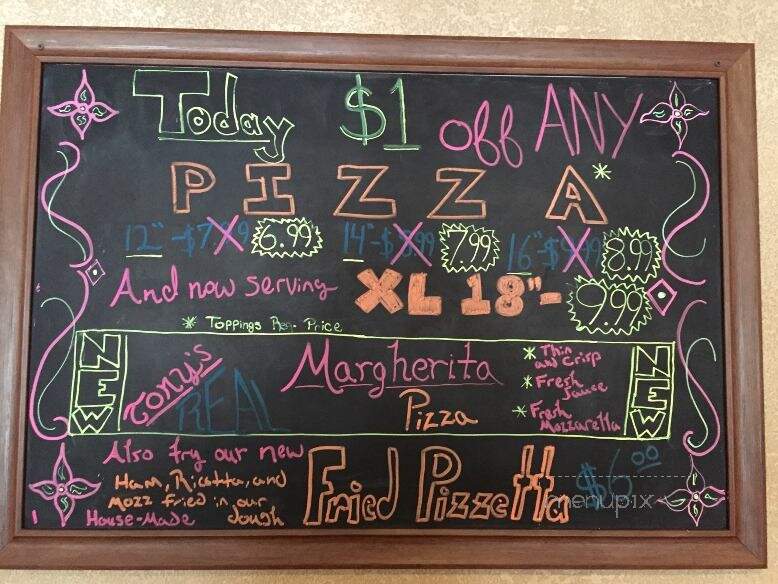 Today $1 off ANY
PIZZA*
12" - $7.99 6.99 14" - $8.99 7.99 16" - $9.99 8.99
And now serving XL 18" - 9.99
* Toppings Reg. Price
NEW Tony's REAL Margherita Pizza NEW
* Thin and Crisp
* Fresh Sauce
* Fresh Mozzarella
Also try our new
Ham, Ricotta, and
Mozz fried in our
House-Made dough
Fried Pizzetta $6.00
menupix